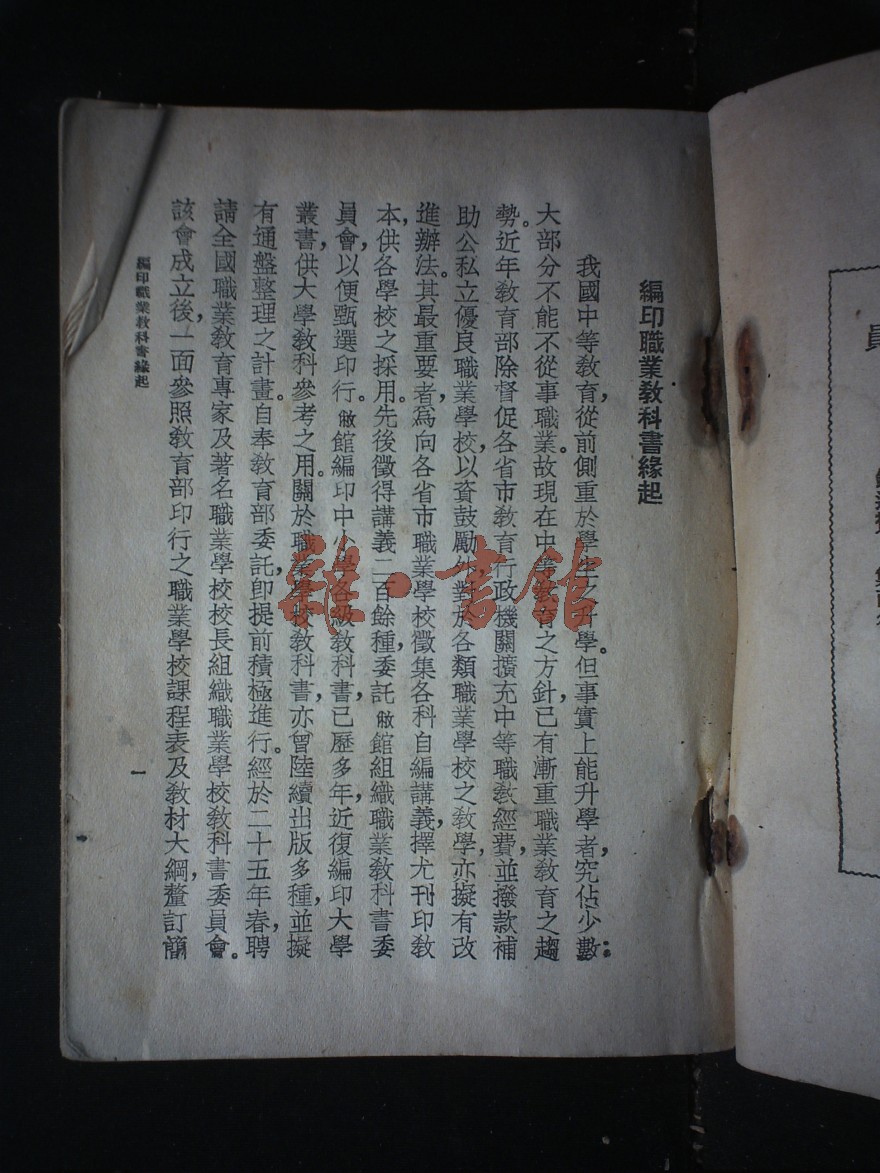 編印職業教科書緣起
我國中等敎育,從前側重於學生之升學。但事實上能升學者,究佔少數;
大部分不能不從事職業。故現在中等敎育之方針,已有漸重職業敎育之趨
勢。近年敎育部除督促各省市敎育行政機關擴充中等職敎經費,並撥款補
助公私立優良職業學校,以資鼓勵外,對於各類職業學校之敎學,亦擬有改
進辦法。其最重要者,爲向各省市職業學校徵集各科自編講義,擇尤刊印敎
本,供各學校之採用。先後徵得講義二百餘種,委託敝館組織職業敎科書委
員會,以便甄選印行。敝館編印中小學各級敎科書,已歷多年,近復編印大學
叢書,供大學敎科參考之用。關於職業學校敎科書,亦曾陸續出版多種,並擬
有通盤整理之計畫。自奉敎育部委託,卽提前積極進行。經於二十五年春,聘
請全國職業敎育專家及著名職業學校校長組織職業學校敎科書委員會。
該會成立後,一面參照敎育部印行之職業學校課程表及敎材大綱,釐訂簡
編印職業敎科書緣起
一
雜·書館
員